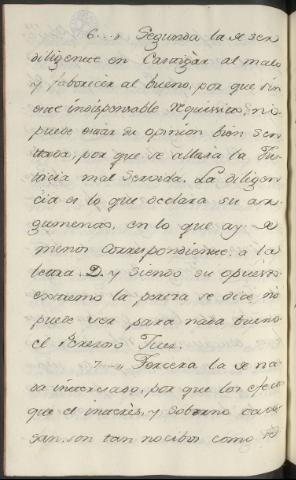 6..," Segunda la de ser
diligente en Castigar al malo
y faborecer al bueno, por que sin
este indispensable requissito, no
puede estar su opinion bien sen
tada, por que se allaria la Jus
ticia mal Servida. La diligen
cia es lo que declara su ar
gumento, en lo que ay de
menos correspondiente, a la
letra. D. y siendo su opuesto
extremo la pereza se dice no
puede ser para nada bueno
el Perezoso Juez.
7.," Tercera la de na
da interesado, por que los efectos
que el interès, y soborno cau
san, son tan nocibos como